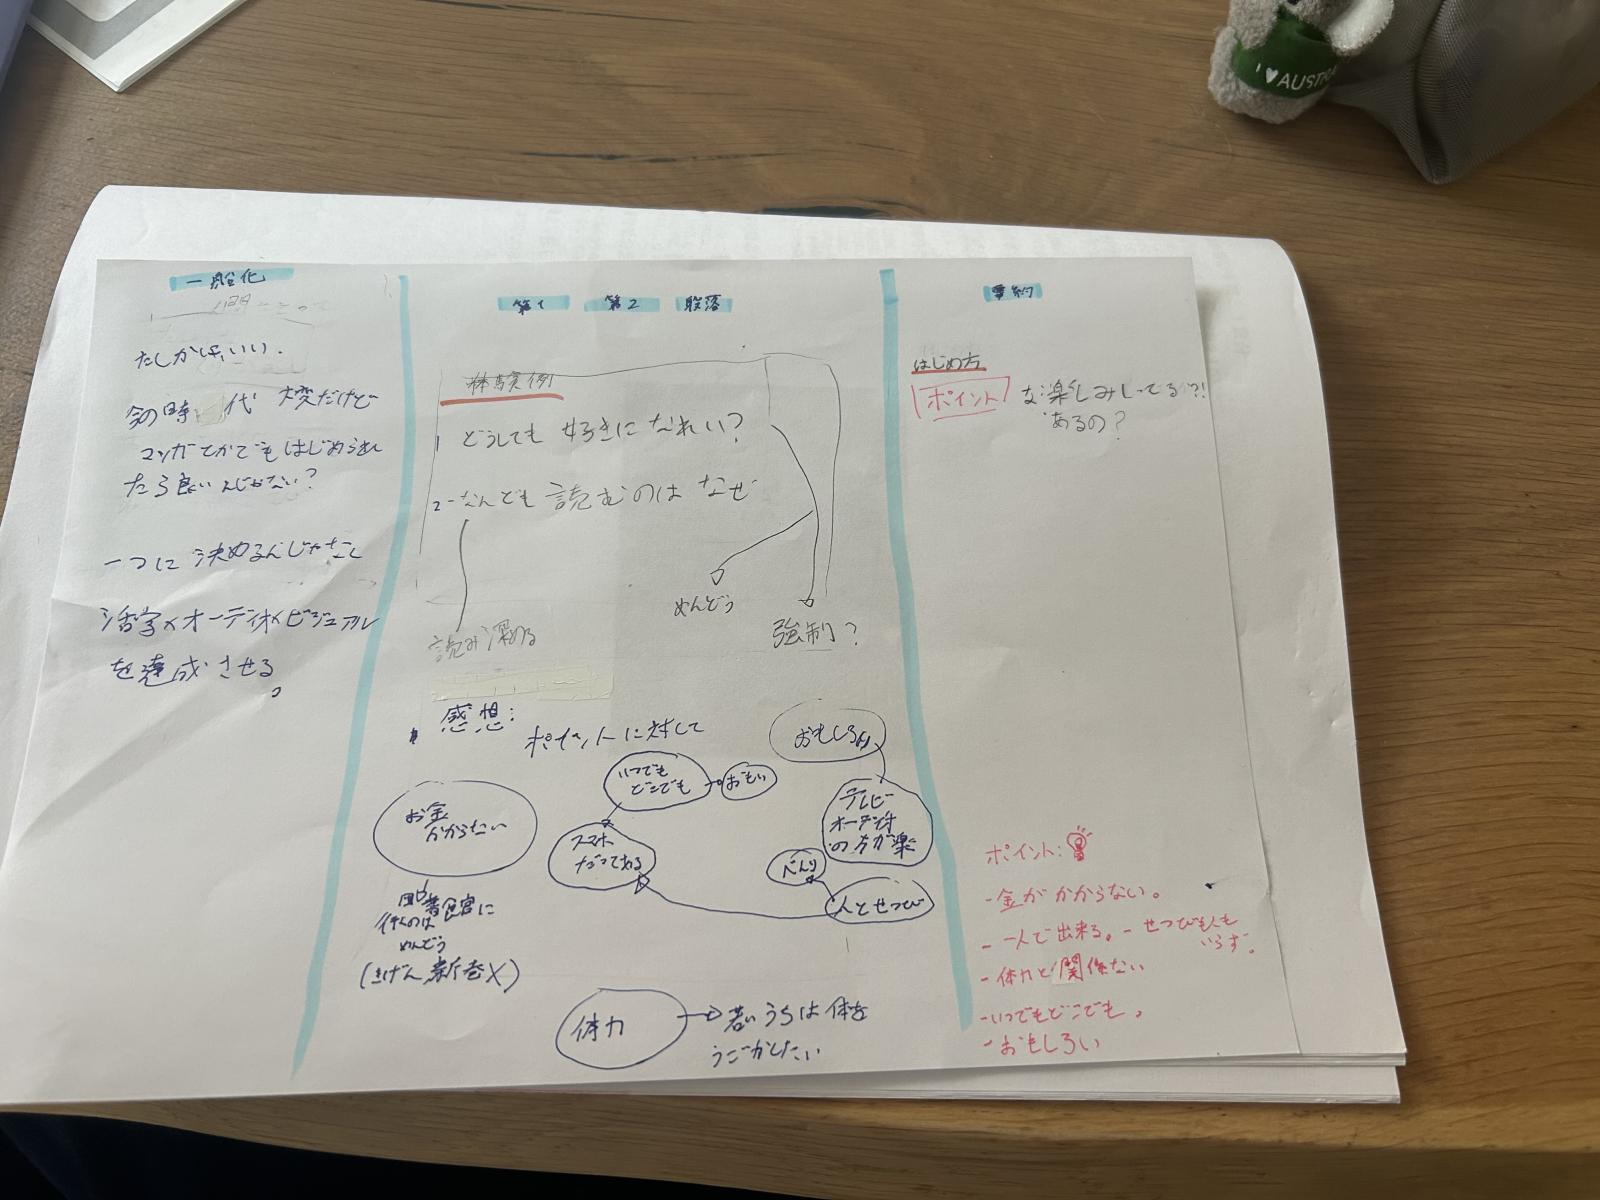 I ♥ AUSTRA
要約
はじめ方
ポイント な楽しみしてる??!
あるの?
ポイント:
- 金がかからない。
- 一人で出来る。 - せつびも人も
いらず。
- 体力と関係ない
- いつでもどこでも。
- おもしろい
第1 第2 段落
体験実例
1 どうしても 好きになれい?
2 - なんども 読むのは なぜ
めんどう
強制?
読み深める
感想:
ポイントに対して
おもしろい
いつでも
どこでも
おもい
お金
かからない
スマホ
だってある
テレビ
オーディオ
の方が楽
べんり
人とせつび
図書館に
行くのは
めんどう
(きげん 新巻X)
体力
若いうちは体を
うごかしたい
一般化
たしかに、いい.
今の時代 大変だけど
マンガとかでもはじめられ
たら良いんじゃない?
一つに決めるんじゃなく
活字×オーディオ×ビジュアル
を達成させる。